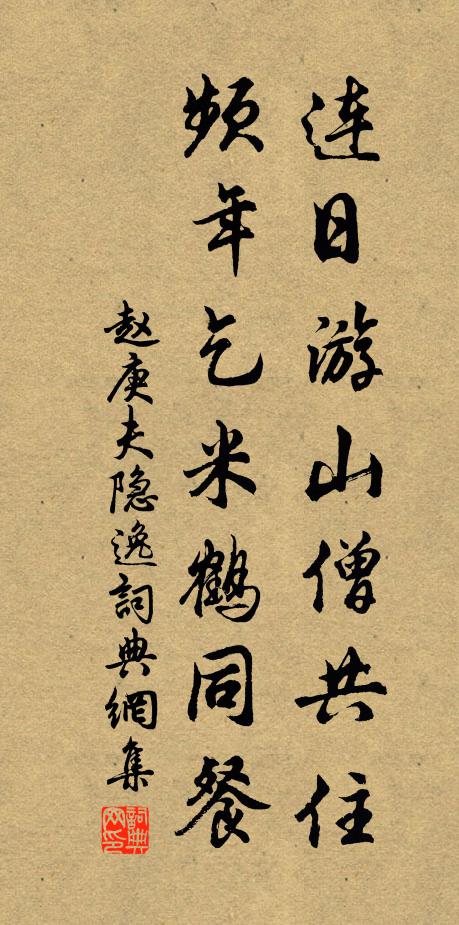 连日游山僧共住
频年乞米鹤同餐
赵庚夫隐逸詞典網集
詞典网印